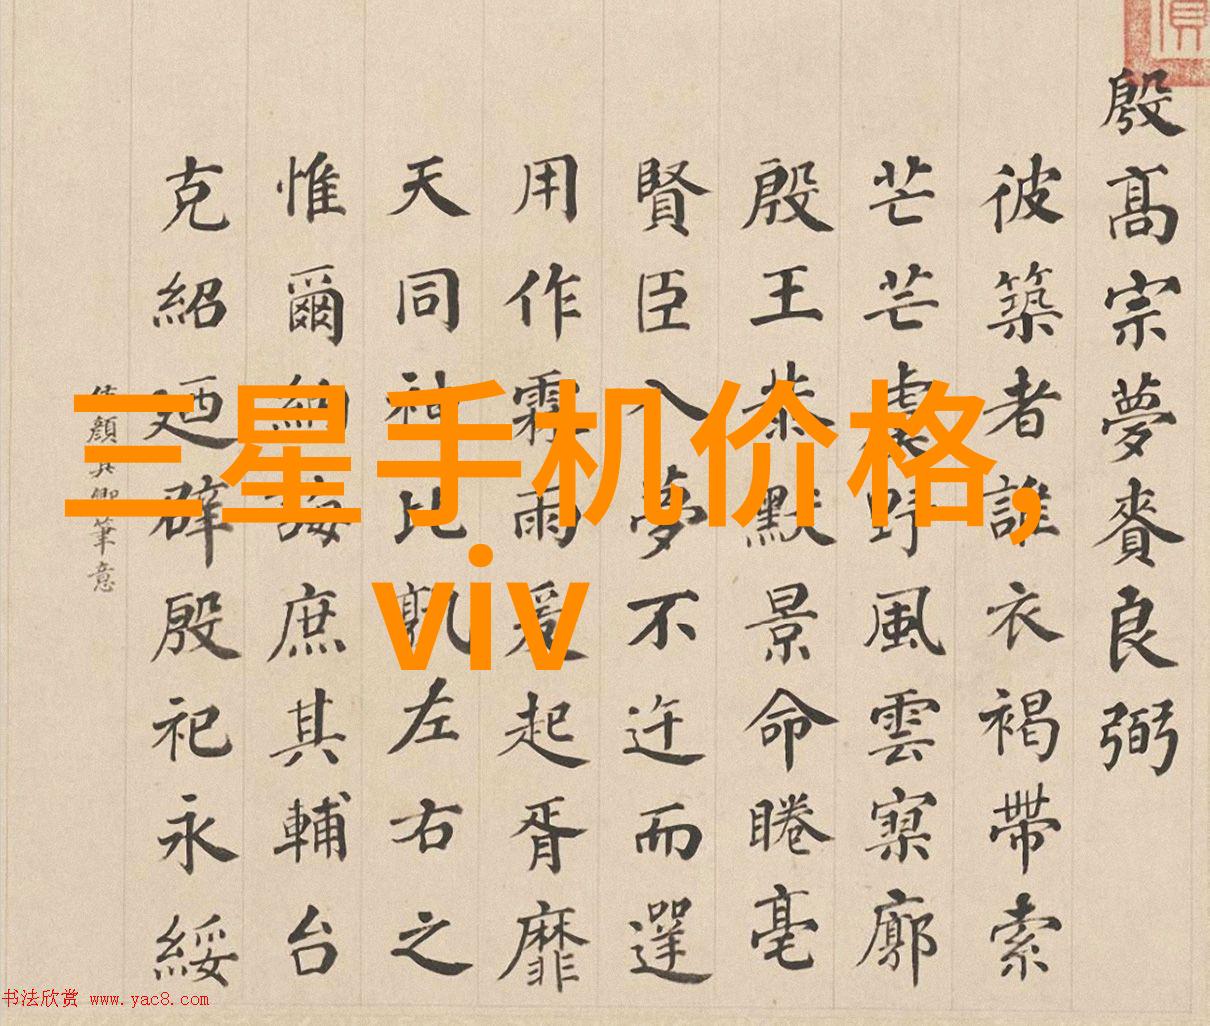 三星手机价格,
viv
殷髙宗夢賚良弼
彼築者誰衣褐帶索
芒芒虞野風雲寥廓
殷王恭默景命睠亳
賢臣入夢不迕而遻
用作霖雨爰起胥靡
天同神比孰左右之
惟爾納誨庶其輔台
克紹廼辟殷祀永綏
仿顏真卿筆意
书法欣赏 www.yac8.com